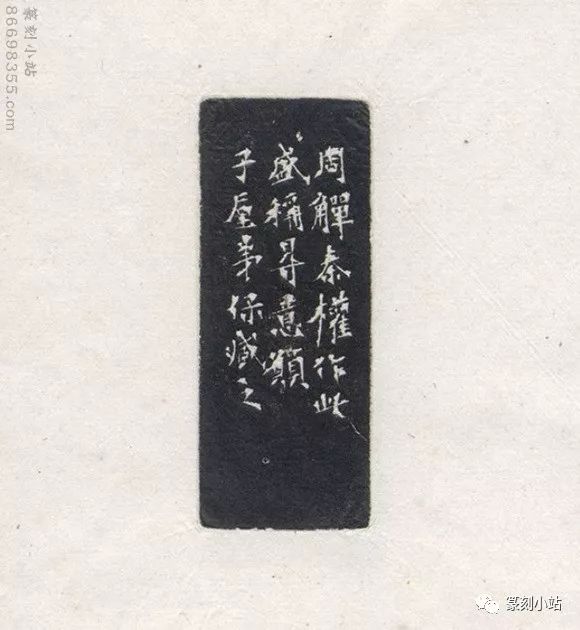 周觶秦權作此
盛稱㝵意願
子弟保藏之
篆刻小站
86698355.com
篆刻小站